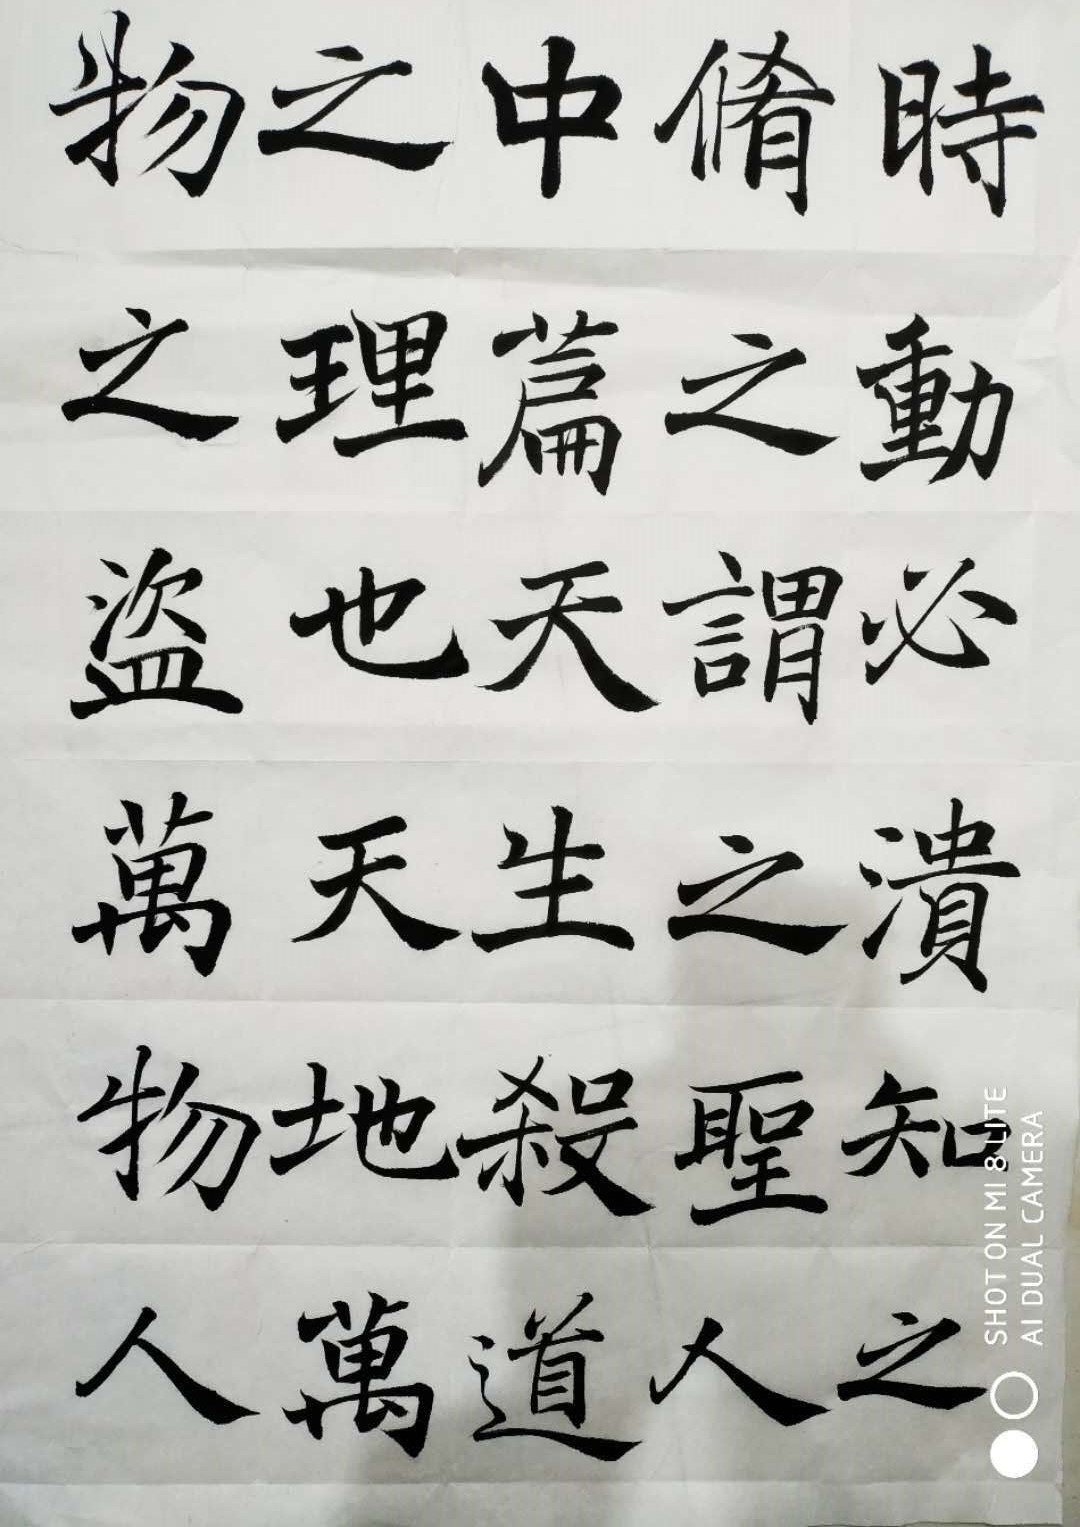 時動必潰知之
脩之謂之聖人
中篇天生殺道
之理也天地萬
物之盜萬物人
SHOT ON MI 8 LITE
AI DUAL CAMERA